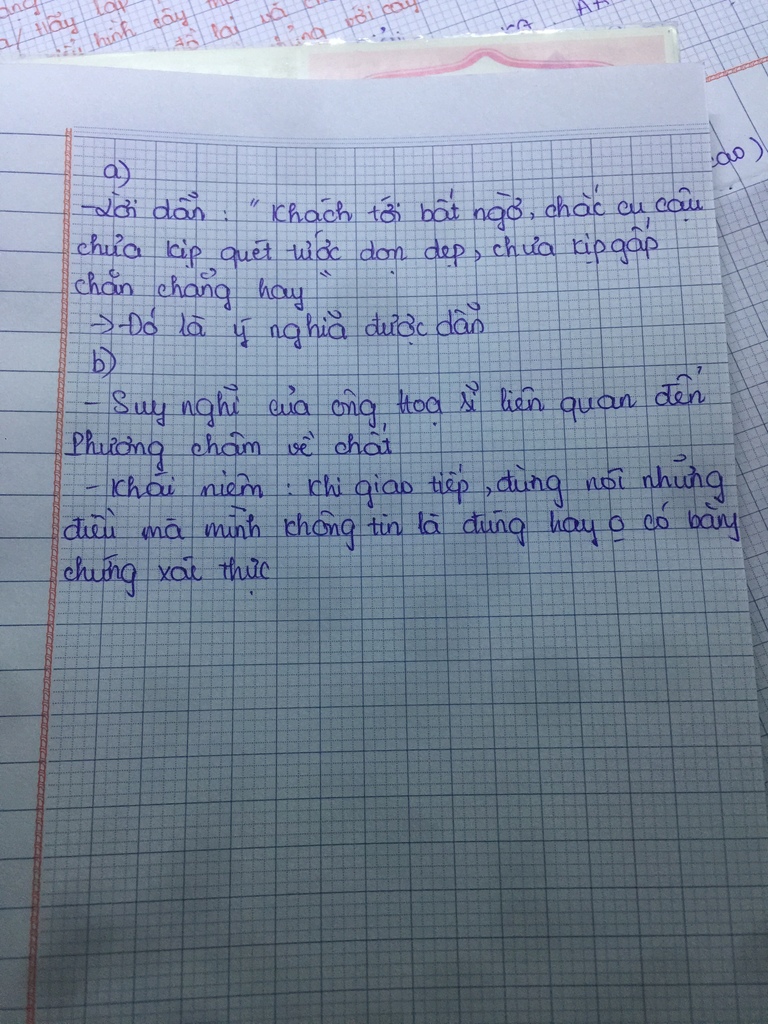 a)
- Lời dẫn : " Khách tới bất ngờ, chắc cu cậu
chưa kịp quét tước dọn dẹp, chưa kịp gấp
chăn chẳng hay "
→ Đó là ý nghĩa được dẫn
b)
- Suy nghĩ của ông Hoạ sĩ liên quan đến
Phương châm về chất
- Khái niệm : Khi giao tiếp, đừng nói những
điều mà mình không tin là đúng hay o có bằng
chứng xác thực
ao)